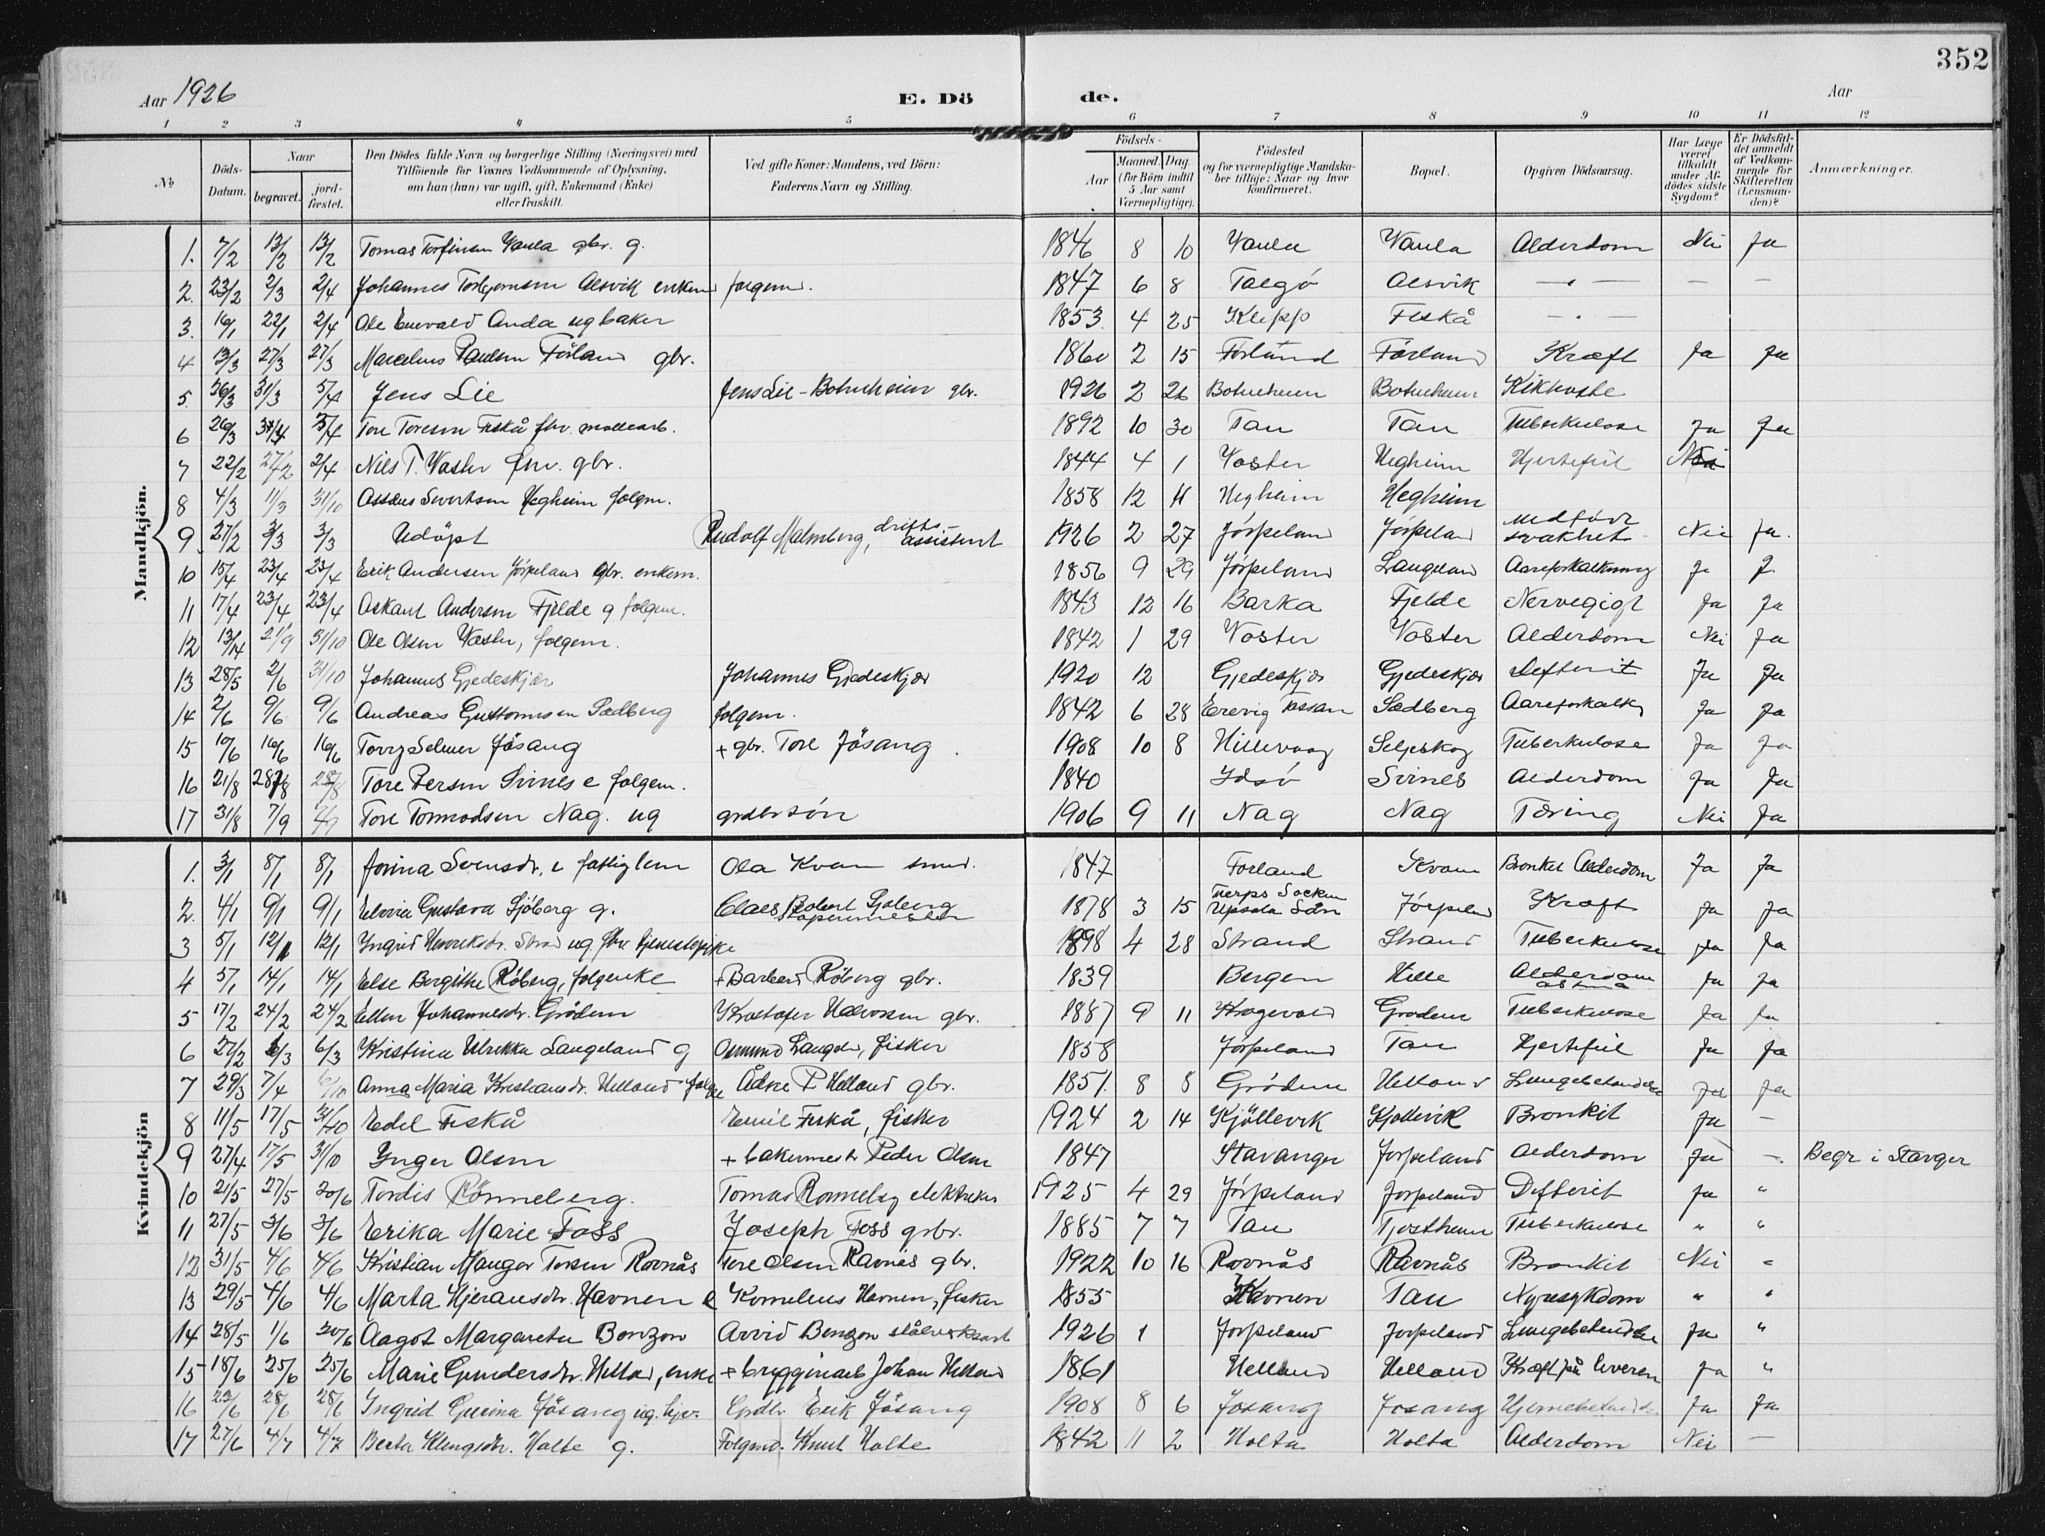 352
Aar 1926 E. Dö de. Aar
1 2 3 4 5 6 7 8 9 10 11 12
No
Döds-Datum.
Naar
begravet.
jord-fæstet.
Den Dödes fulde Navn og borgerlige Stilling (Næringsvei) med
Tilföiende for Voxnes Vedkommende af Oplysning,
om han (hun) var ugift, gift, Enkemand (Enke)
eller fraskilt.
Ved gifte Koner: Mandens, ved Börn:
Faderens Navn og Stilling.
Födsels-
Aar
Maaned. Dag.
(for Börn indtil
5 Aar samt
Værnepligtige).
Födested
og for værnepligtige Mandska-
ber tillige: Naar og hvor
konfirmeret.
Bopæl.
Opgiven Dödsaarsag.
Har Læge
været
tilkaldt
under Af-
dödes sidste
Sygdom?
Er Dödsfal-
det anmeldt
af Vedkom-
mende for
Skifteretten
(Lensman-
den)?
Anmærkninger.
Mandkjön.
1. 7/2 13/2 13/2 Tomas Torfinsen Vaula gbr. g. 1846 8 10 Vaula Vaula Alderdom Nei Ja
2. 23/2 2/3 2/4 Johannes Torbjørnsen Alsvik enkem folgem. 1847 6 8 Talgö Alsvik — — —
3. 16/1 22/1 2/4 Ole Enevald Anda ug baker 1853 4 25 Klepp Fiskå —
4 13/3 27/3 27/3 Marcelius Paulsen Förland gbr. 1860 2 15 Förland Förland Kræft Ja Ja
5. 26/3 31/3 5/4 Jens Lie Jens Lie - Botneheim gbr. 1926 2 26 Botneheim Botneheim Kikhoste
6 26/3 5/4 Tore Toresen Fiskå fhv. møllearb. 1892 10 30 Tau Tau Tuberkulose Ja Ja
7 22/2 27/2 2/4 Nils T. Vaster fhv. gbr. 1844 4 1 Voster Hegheim Hjertefeil
8 4/3 11/3 31/10 Sivertsen Hegheim folgm. 1858 12 11 Hegheim Hegheim
9 27/2 3/3 3/3 Udöpt Rudolf Malmberg, drifts-assistent 1926 2 27 Jörpeland Jörpeland medfödt svakhet Nei Ja.
10 15/4 23/4 23/4 Erik Andersen Jörpeland gbr. enkem. 1856 9 29 Jörpeland Langeland Aareforkalkning J. J.
11 17/4 23/4 23/4 Andersen Fjelde g folgem. 1843 12 16 Barka Fjelde Nervegigt Ja Ja
12 13/14 21/9 31/10 Ole Olsen Voster, folgem. 1842 1 29 Voster Voster Alderdom Nei Ja
13 28/5 2/6 31/10 Johannes Gjedeskjær Johannes Gjedeskjær 1920 12 Gjedeskjær Gjedeskjær Difterit Ja Ja
14 2/6 9/6 9/6 Andreas Guttormsen Sedberg folgem. 1842 6 28 Erevig Fossan Sedberg Aareforkalk Ja Ja
15 10/6 16/6 16/6 Torry Selmer Jösang + gbr. Tore Jösang 1908 10 8 Hillevaag Seljeskog Tuberkulose Ja Ja
16 21/8 28/8 28/8 Tore Persen Svines e folgem. 1840 Idsö Svines Alderdom Ja Ja
17 31/8 7/9 7/9 Tore Tormodsen Nag. ug grdbr sön 1906 9 11 Nag Nag Tæring Nei Ja
Kvindekjön
1. 3/1 8/1 8/1 Jorina Svensdr. e fattiglem Ola Kvam smed. 1847 Forland Kvam Bronkit Alderdom Ja Ja
2. 4/1 9/1 9/1 Elvira Gustava Sjöberg g. Claes Robert Sjöberg 1878 3 15 Tierps Socken Upsala Län Jörpeland Kræft Ja Ja
3 5/1 12/1 12/1 Ingrid Henriksdr. Strand ug fhv. tjenestepike 1898 4 28 Strand Strand Tuberkulose Ja Ja
4 5/1 14/1 14/1 Else Bergitte Röberg, folgenke + Röberg gbr. 1839 Bergen Hille Alderdom astma Ja Ja
5 17/2 24/2 24/2 Ellen Johannesdr. Grödem Kristofer Halvorsen gbr. 1887 9 11 Grödem Tuberkulose Ja Ja
6 27/2 6/3 6/3 Kristina Ulrikka Langeland g Langeland, fisker 1858 Jörpeland Tau Hjertefeil Ja Ja
7 29/3 7/4 6/10 Anna Maria Kristiansdr. Helland folge Ådne P Helland gbr. 1851. 8 8 Grödem Helland Lungebetændelse Ja Ja
8 11/5 17/5 31/10 Edel Fiskå Emil Fiskå, fisker 1924 2 14 Kjöllevik Kjöllevik Bronkit Ja —
9 27/4 17/5 31/10 Inger Olsen + bakermester Peder Olsen 1847 Stavanger Jorpeland Alderdom Ja — Begr i Stavger
10 21/5 27/5 20/6 Tordis Rönneberg. Tomas Rönneberg elektriker 1925 4 29 Jörpeland Jorpeland Difterit Ja "
11 27/5 3/6 3/6 Erika Marie Foss Joseph Foss grbr. 1885 7 7 Tau Tjostheim Tuberkulose " "
12 31/5 4/6 4/6 Kristian Mangor Torsen Rovnås Tore Olsen Ravnås gbr. 1922 10 16 Rovnås Ravnås Bronkit Nei "
13 29/5 4/6 4/6 Marta Hjeransdr. Havnen e Kornelius Havnen, fisker 1855 Havnen Tau Nyresykdom " "
14 28/5 1/6 20/6 Aagot Margareta Bonzon Arvid Bonzon stålverksarb 1926 1 Jorpeland Jorpeland Lungebetændelse Ja "
15 18/6 25/6 25/6 Marie Gundersdr. Helland, enke + bryggeriarb Johan Helland 1861 Helland Helland Kræft på leveren Ja "
16 23/6 28/6 28/6 Ingrid Gurina Jösang ug. hjv. Grdbr. Erik Jösang 1908 8 6 Josang Josang Hjernebetænd. Ja Ja
17 27/6 4/7 4/7 Berta Klengsdr. Holte g. Folgmd. Knut Holte 1842 11 2 Holta Holta Alderdom Nei —